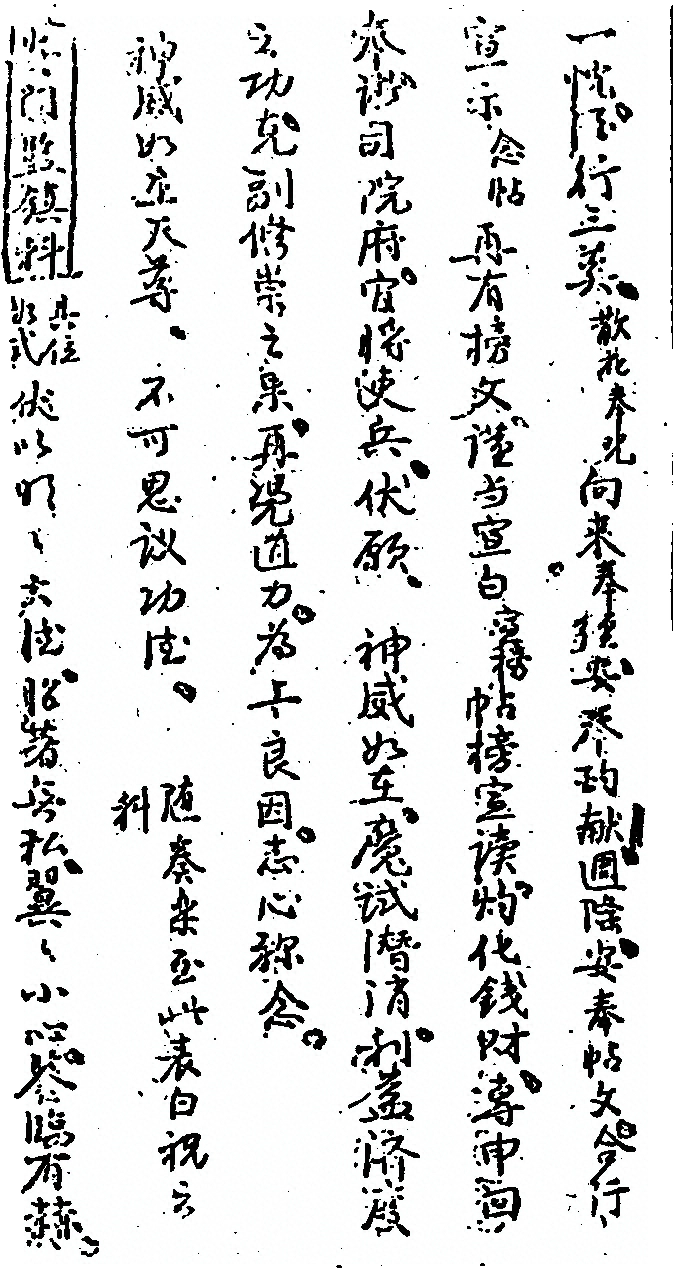 一忱酒行三奠散花奉化向来奉安琴酌献週隆安奉帖文合行
宣示念帖再有榜文谨当宣白宣榜帖榜宣读灼化钱财専伸回
奉诸司院府官将吏兵伏愿神威如在魔试潜消利益济度
之功克副修崇之果再凭道力为上良因志心称念
神威如在天尊不可思议功德随奏楽至此表白祝云科
门监镇科具位如式伏以明々大德昭著无私翼々小心鉴临有赫